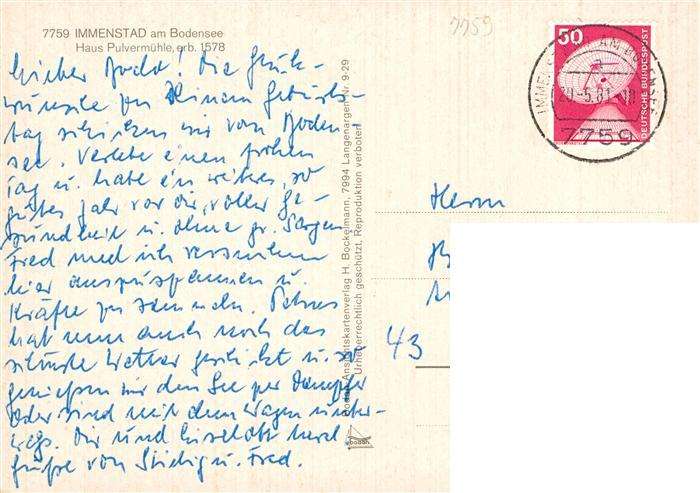 7759 IMMENSTAD am Bodensee
Haus Pulvermühle, erb. 1578
Lieber ! Die Glück-
wünsche zu Deinem Geburts-
tag schicken wir vom Boden-
see. Verlebe einen frohen
Tag u. habe ein weiteres, so
gutes Jahr vor dir, voller Ge-
sundheit u. ohne gr. Sorgen.
Fred und ich versuchen
hier auszuspannen u.
Kräfte zu sammeln. Petrus
hat nun auch noch das
schönste Wetter geschickt u. so
genießen wir den See per Dampfer
oder sind mit dem Wagen unter-
wegs. Dir und herzl.
Grüße von u. Fred.
Ansichtskartenverlag H. Bockelmann, 7994 Langenargen Nr. 9-29
Urheberrechtlich geschützt. Reproduktion verboten
7759
50
DEUTSCHE BUNDESPOST
7759
Herrn
43